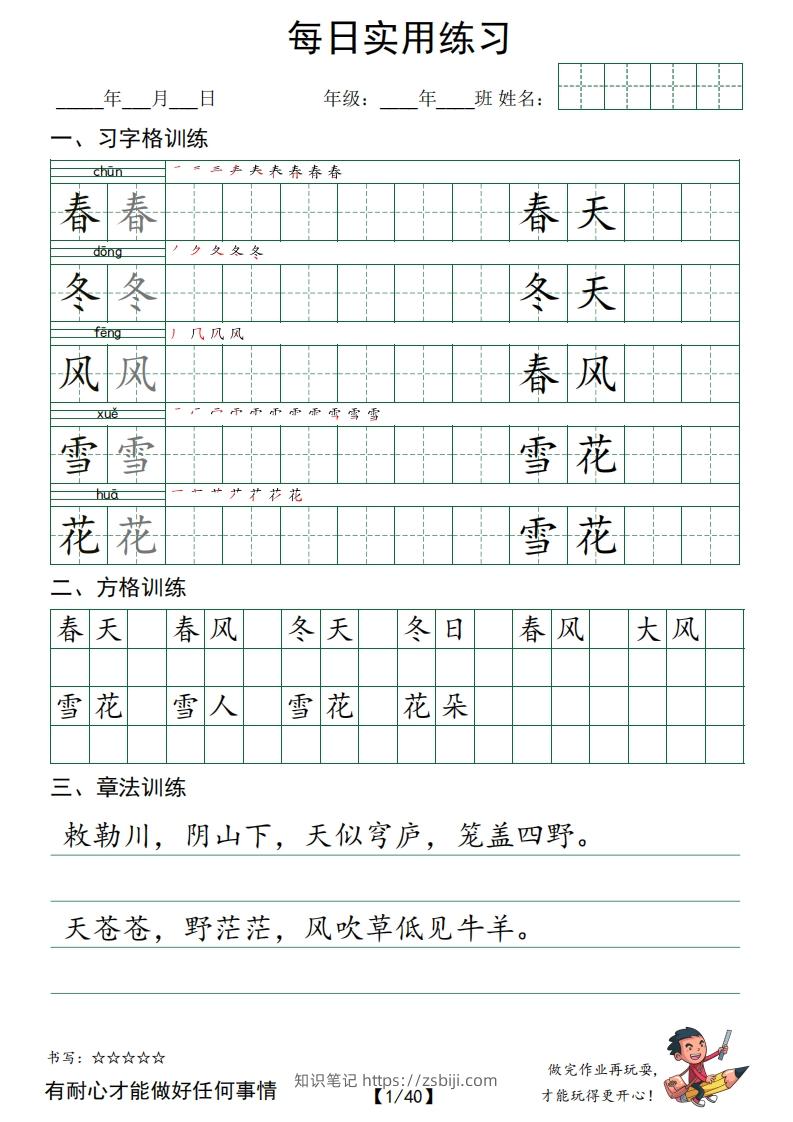 每日实用练习
_____年___月___日 年级：____年____班 姓名：
一、习字格训练
chūn
春 春 春 天
dōng
冬 冬 冬 天
fēng
风 风 春 风
xuě
雪 雪 雪 花
huā
花 花 雪 花
二、方格训练
春天 春风 冬天 冬日 春风 大风
雪花 雪人 雪花 花朵
三、章法训练
敕勒川，阴山下，天似穹庐，笼盖四野。
天苍苍，野茫茫，风吹草低见牛羊。
书写：☆☆☆☆☆
有耐心才能做好任何事情
知识笔记 https://zsbiji.com
【1/40】
做完作业再玩耍，
才能玩得更开心！